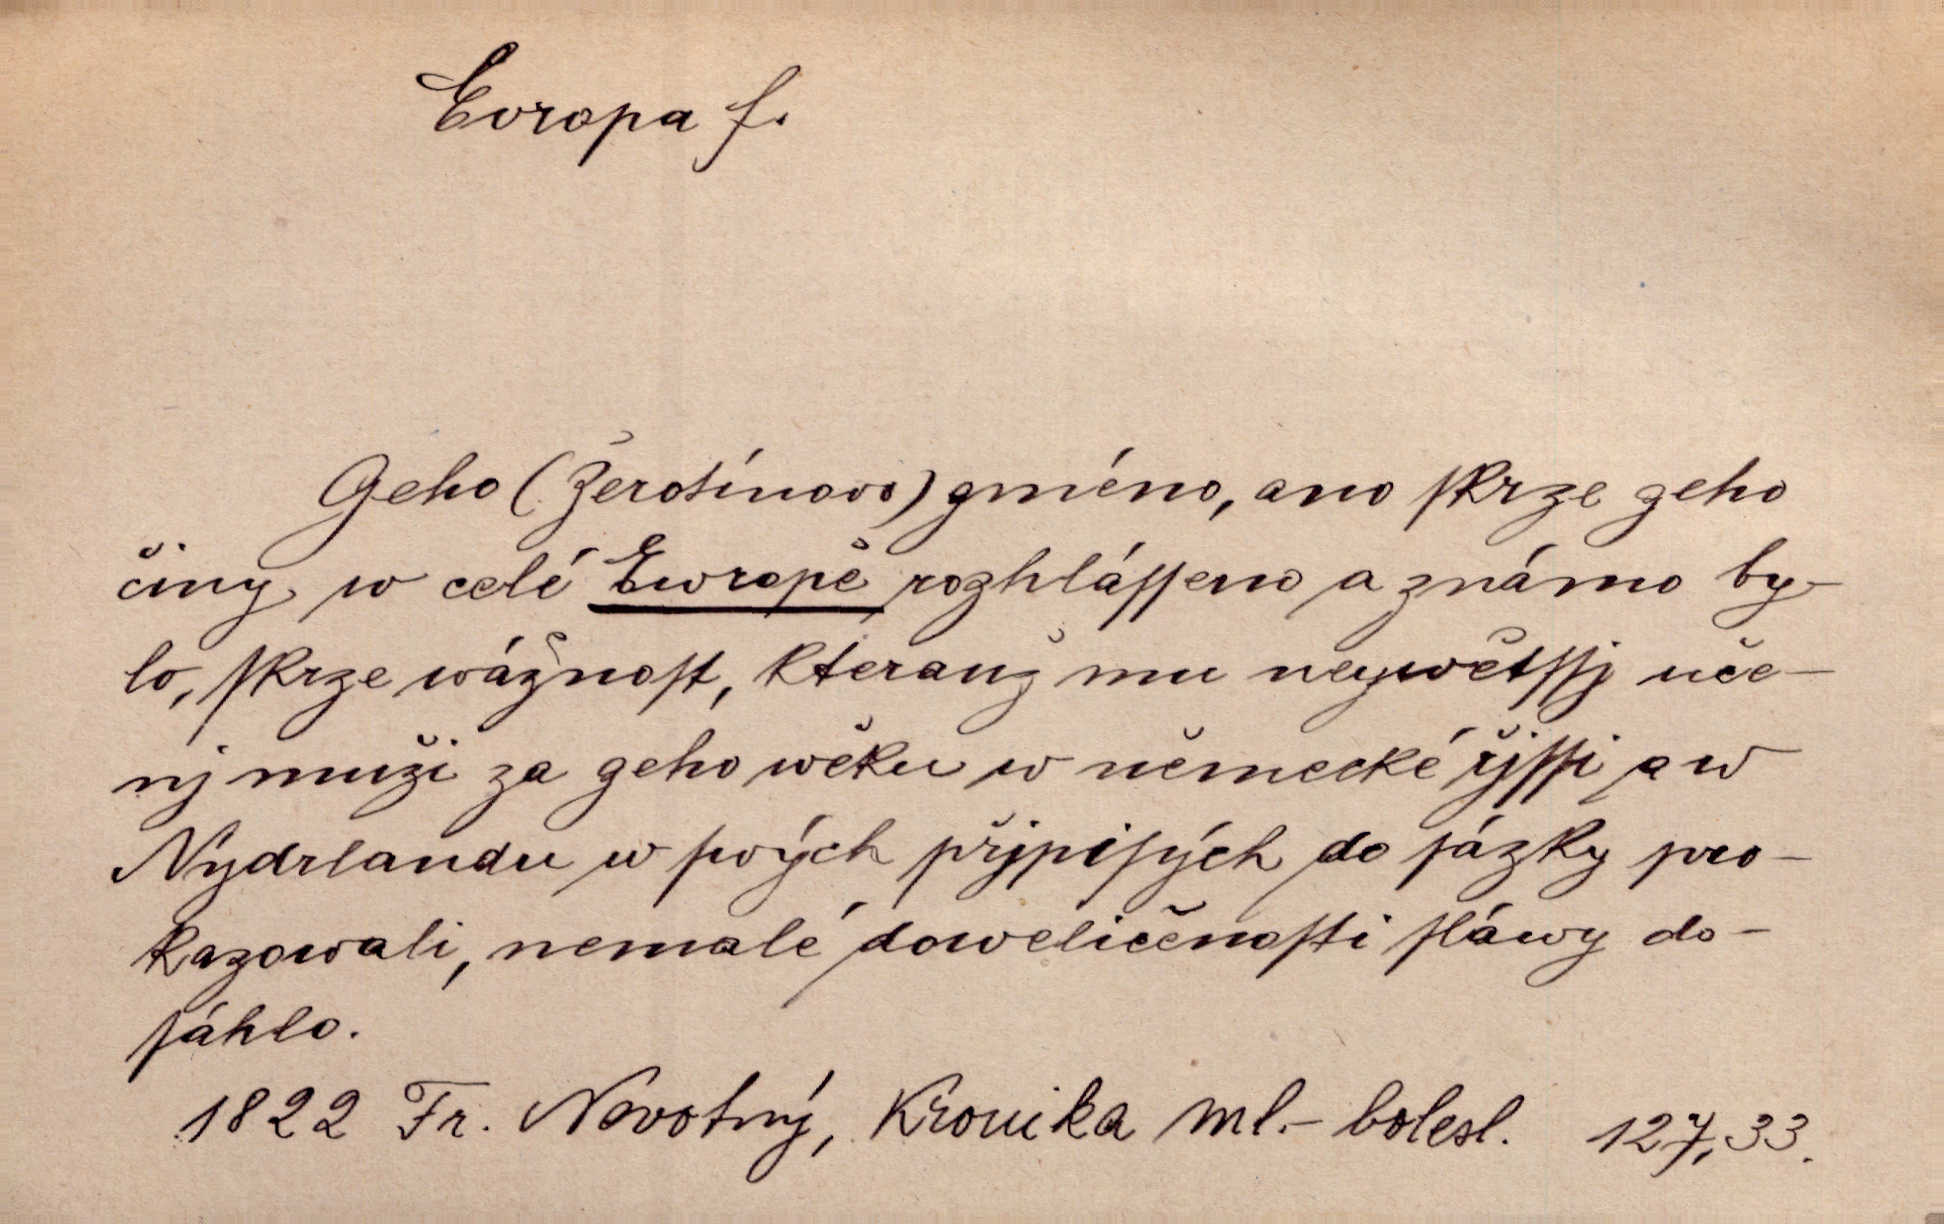 Evropa f.
Geho (Žerotínovo) gméno, ano ſkrze geho
činy w celé Ewropě rozhláſſeno a známo by-
lo, ſkrze wážnoſt, kterauž mu neywětſſj uče-
nj muži za geho wěku w německé řjſſi a w
Nydrlandu w ſwých přjpiſých do ſázky pro-
kazowali, nemalé doweličenoſti ſláwy do-
ſáhlo.
1822 Fr. Novotný, Kronika ml.- bolesl. 127, 33.